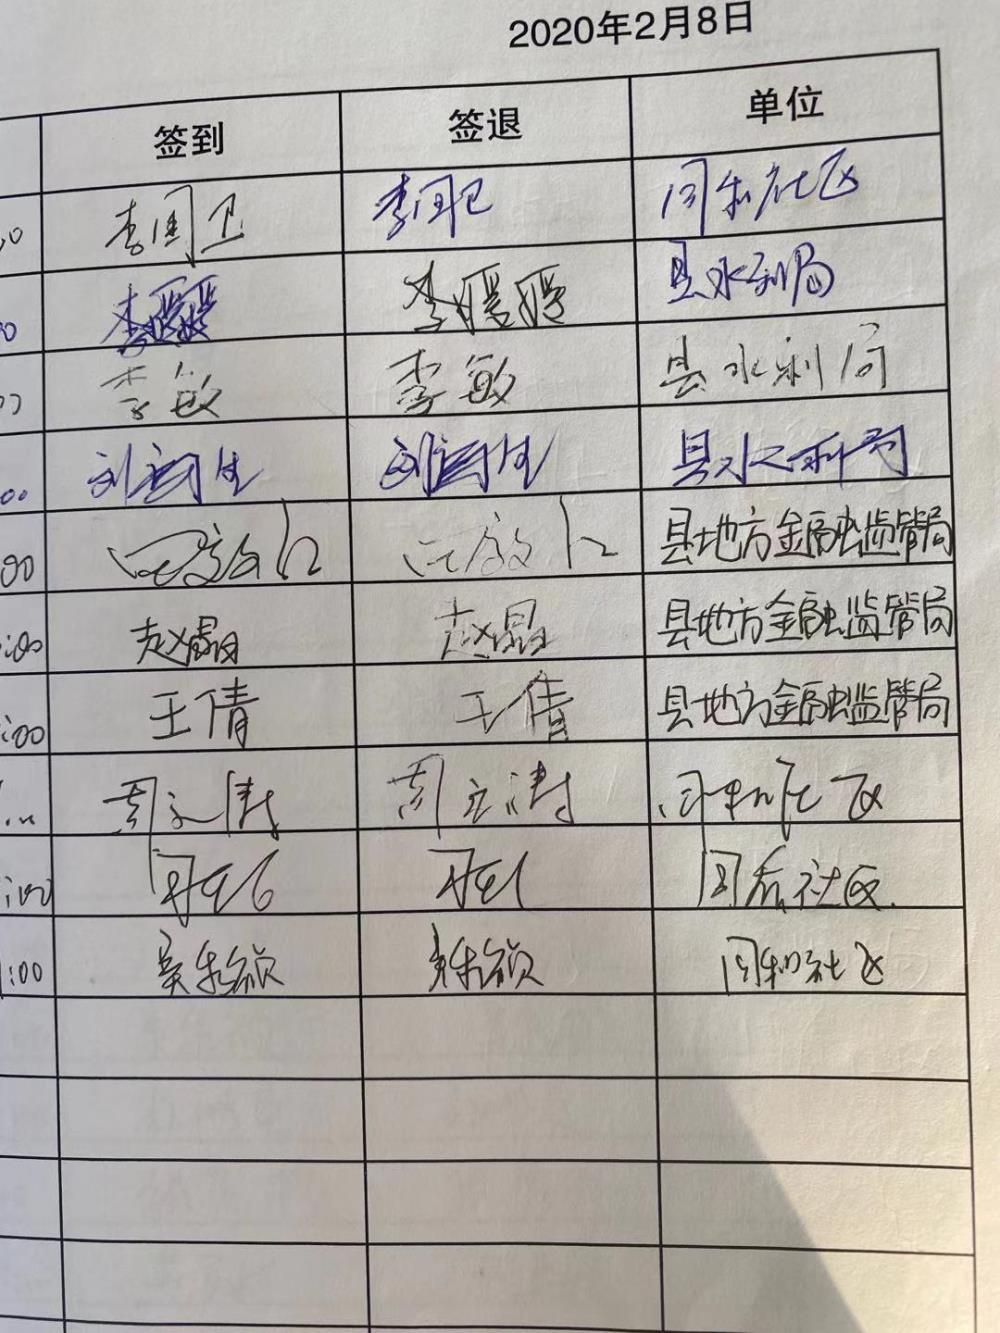 2020年2月8日
签到 签退 单位
李国卫 李国卫 同和社区
李媛媛 李媛媛 县水利局
李敏 李敏 县水利局
县水利局
县地方金融监管局
:00 赵晶 赵晶 县地方金融监管局
:00 王倩 王倩 县地方金融监管局
周文涛 周文涛 同和社区
社区
:00 同和社区